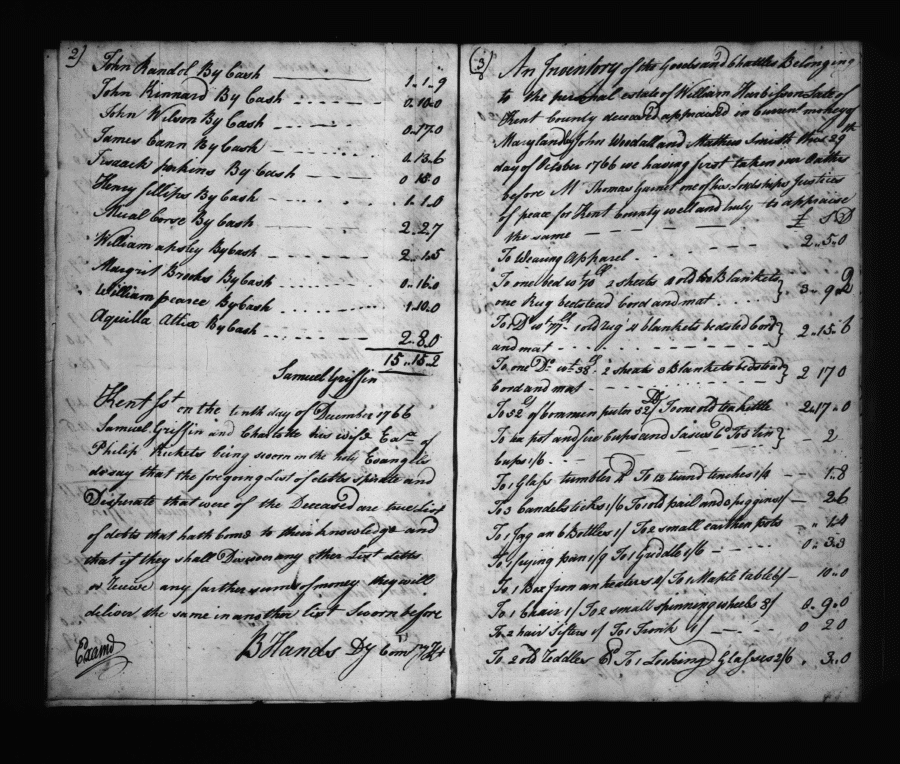 2)
John Randol By Cash 1..1..9
John Kinnard By Cash 0.10.0
John Wilson By Cash 0.17.0
James Cann By Cash 0.13.6
perkins By Cash 0 15.0
Henry fillips By Cash 1..1.0
Corse By Cash 2..2.7
William apsley By Cash 2..1.5
Margrit Brooks By Cash 0..16.0
William pearce By Cash 1.10.0
Aquilla Attix By Cash 2..8.0
15..15.2
Samuel Griffin
Kent Sst on the tenth day of December 1766
Samuel Griffin and Charlotte his wife of
Philip Rickets being sworn on the holy Evangelis
do say that the foregoing List of debts and
Disperate that were of the Deceased are true List
of debts that hath Come to their knowledge and
that if they shall Discover any other Lost debts
or receive any farther sums of money they will
deliver the same in another List Sworn before
B Hands Dy
Examd
(3)
An Inventory of the Goods and Chattles Belonging
to the personal estate of William Late of
Kent County deceased appraised in Current money of
Maryland by John Woodall and Mathew Smith this 29th
day of October 1766 we having first taken our Oaths
before Mr Thomas one of his Lordships Justices
of peace for Kent County well and truly to appraise
the same £ S D
To Wearing Apparel 2..5..0
To one bed wt 70 2 sheets 2 old Blankets
one Rug bedstead Cord and mat 3.. 9
To 1 Do wt 1 old rug 4 blankets bedsted Cord
and mat 2..15..6
To one Do wt 58 2 sheats 3 Blankets bedstead
Cord and mat 2 17 0
To 52 of Common puter To one old tea kettle 2..17..0
To tea pot and five Cups and Sases To 3 tin
Cups 1/6 2
To 1 Glass tumbler To 12 trenches 1/4 1..8
To 3 Candelsticks 1/6 To 1 old pail and 2 piggins 2 6
To 1 Jug an 6 Bottles 1/ To 2 small earthen pots 1.4
To 1 frying pan 1/9 To 1 Griddle 1/6 0..3.3
To 1 Box Iron an healers To 1 Maple table 10..0
To 1 Chair 1/ To 2 small spinning wheels 8/ 0..9..0
To 2 hair sifters 1/ To 1 Trunk 1/ 0 2 0
To 2 old & To 1 Looking Glass 2/6 3..0